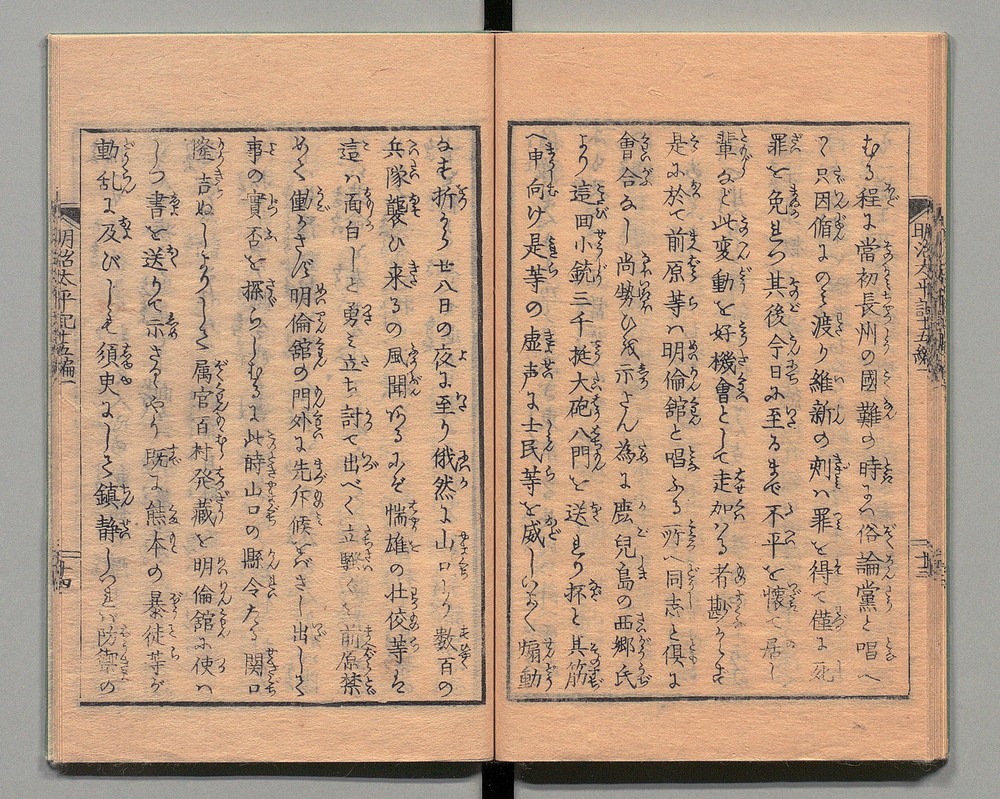 むる程に當初長州の國難の時に俗論黨と唱へ
て只因循にのミ渡り維新の刻ハ罪を得て僅に死
罪を免れつ其後今日に至るまで不平を懐て居し
輩など此変動を好機會として走加はる者尠からず
是に於て前原等ハ明倫舘と唱ふる所へ同志と倶に
會合なし尚勢ひを示さん為に鹿児島の西郷氏
より這回小銃三千挺大砲八門を送れり抔と其筋
へ申向け是等の虚声に士民等を威しいよく煽動
なす折から廿八日の夜に至り俄然に山口より数百の
兵隊襲ひ来るの風聞あるにぞ惴雄の壮佼等は
這ハ面白しと勇ミ立ち討て出べく立騒ぐを前原禁
めて働かさず明倫舘の門外に先斥候をバさし出して
事の實否を探らしむるに此時山口の縣令たる関口
隆吉ぬしよりして属官百村発蔵を明倫舘に使ハ
しつ書を送りて示さるゝやう既に熊本の暴徒等が
動乱に及びしも須臾にして鎮静しつれバ防禦の
明治太平記十五編一
十三
明治太平記十五編一
十四